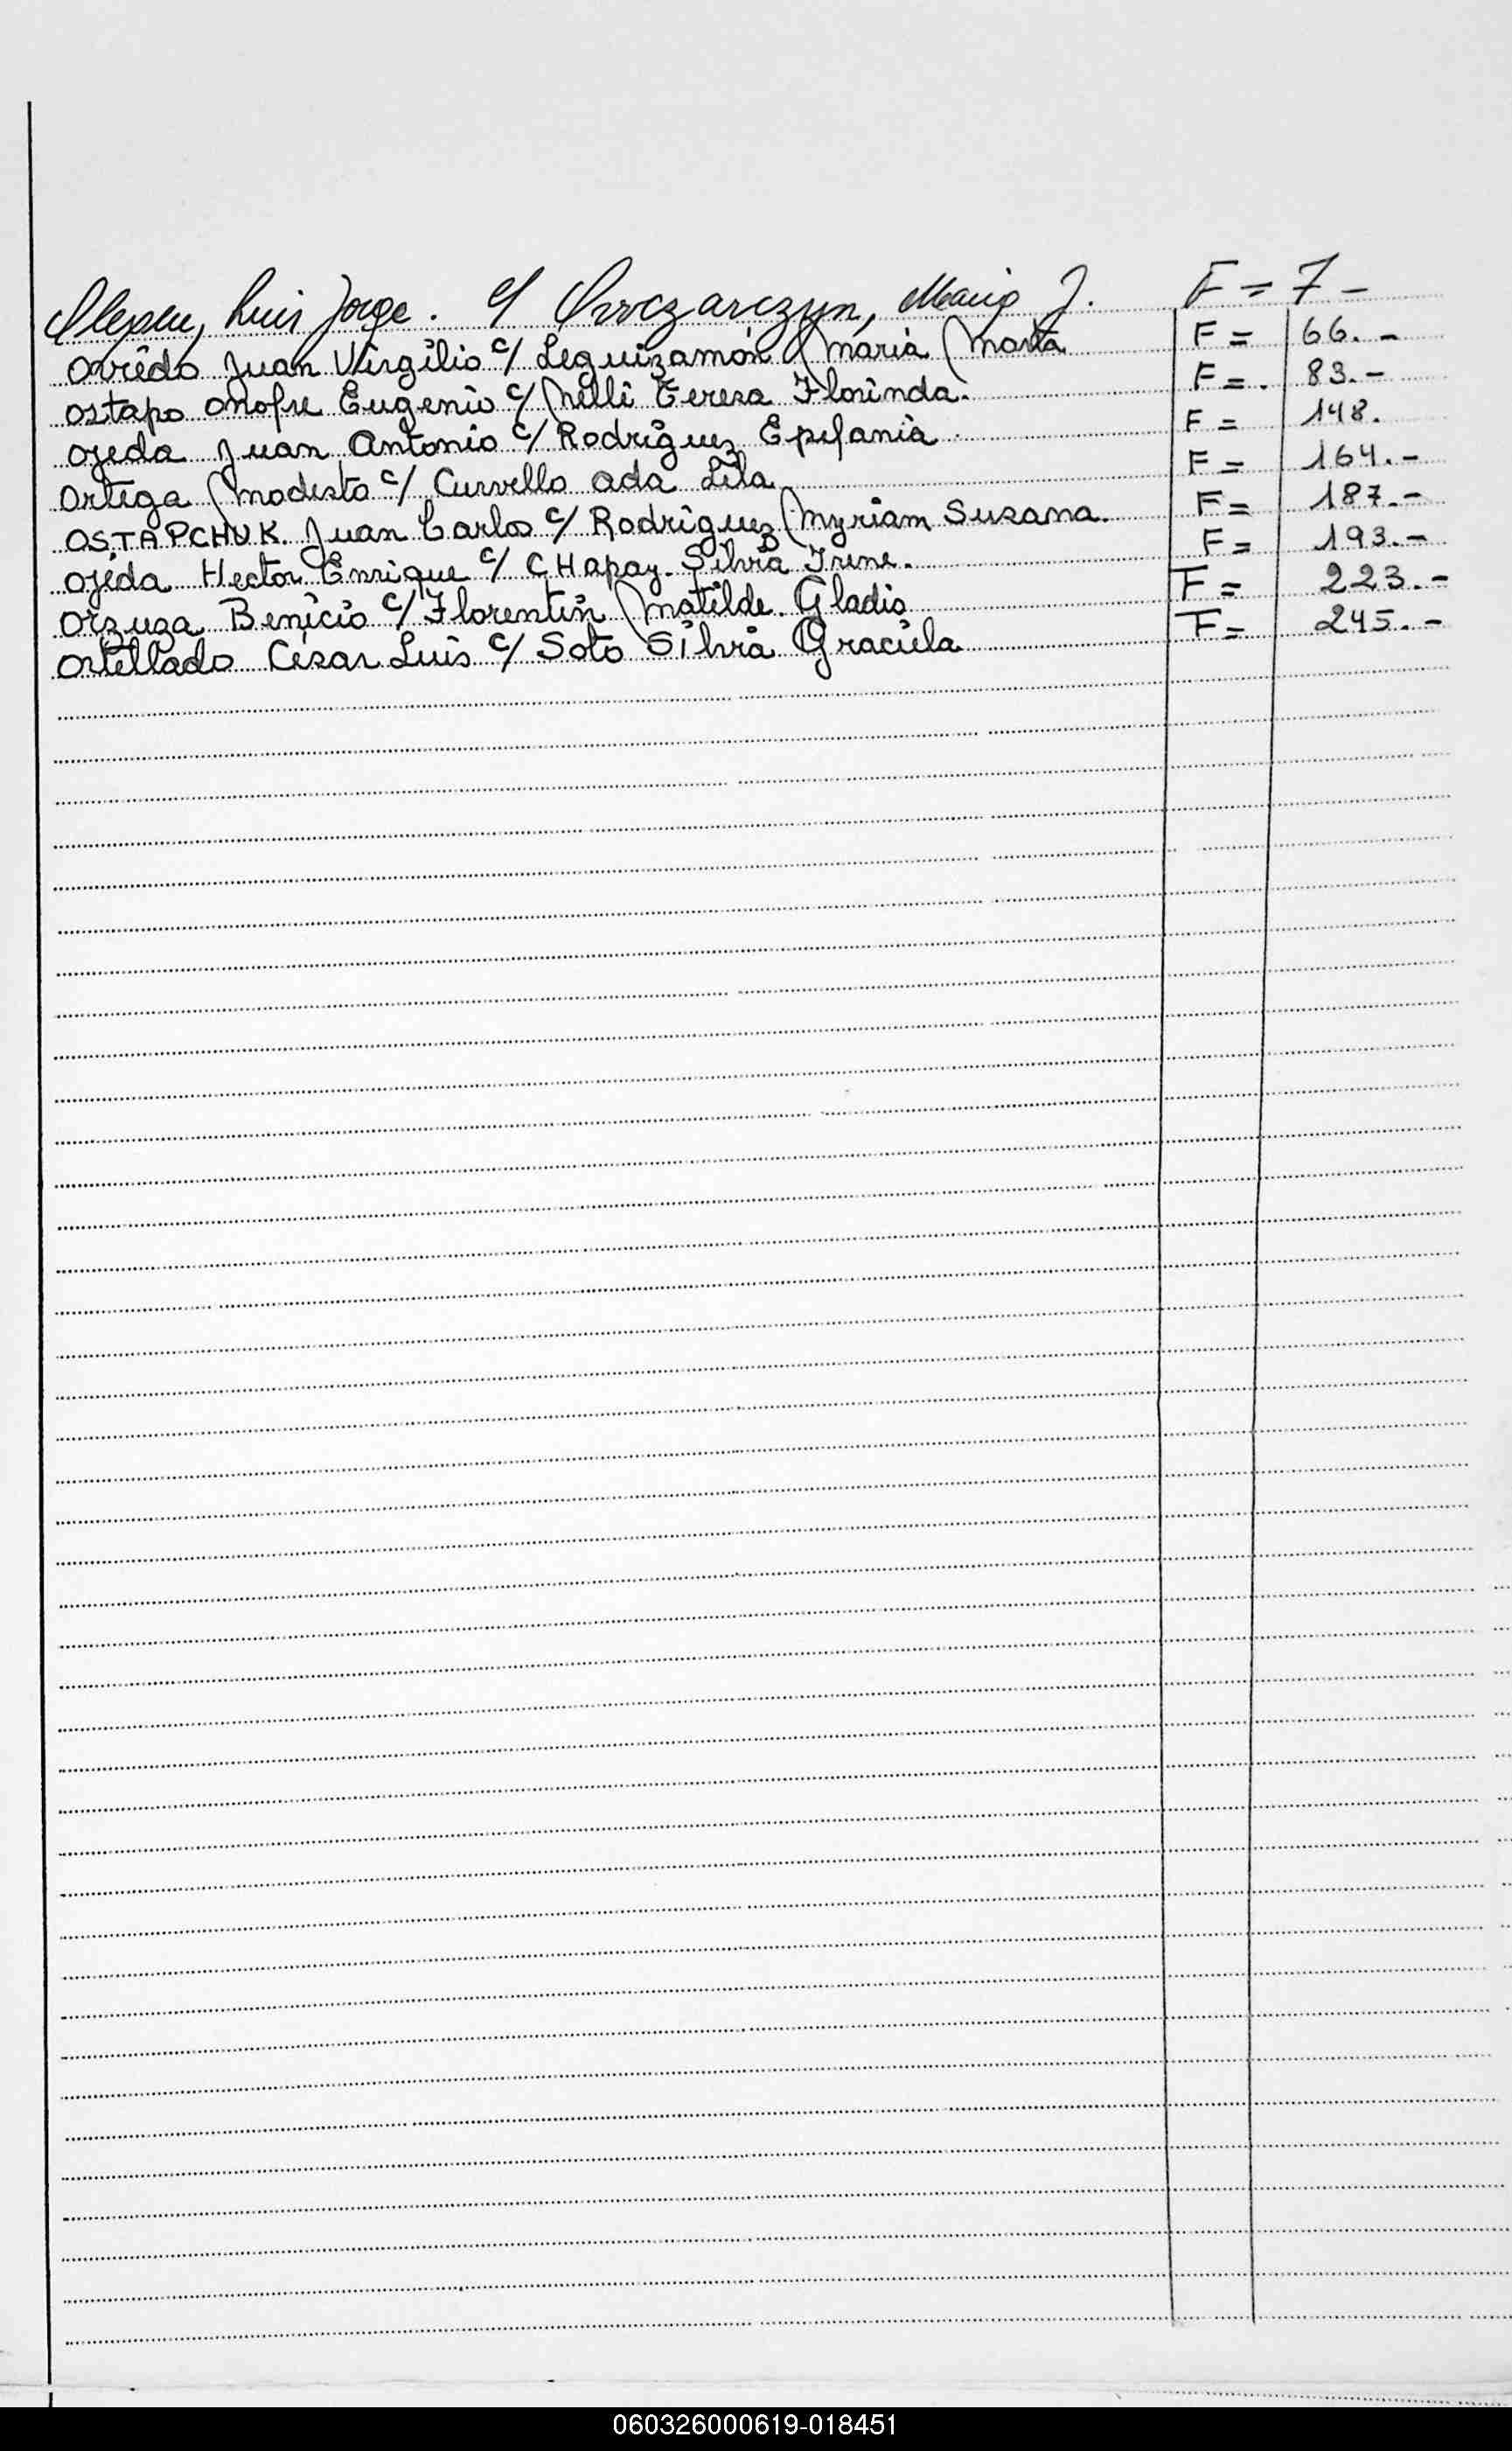 Luis Jorge. c/ Owczarczyn, Mario J. F = 7 -
Oviedo Juan Virgilio c/ Leguizamón Maria Marta F = 66.-
Ostapo Onofre Eugenio c/ Nelli Teresa Florinda. F = . 83.-
Ojeda Juan Antonio c/ Rodriguez Epifania F = 148.
Ortega Modesto c/ Curvello Ada Lila F = 164.-
OSTAPCHUK. Juan Carlos c/ Rodriguez Myriam Susana. F = 187.-
Ojeda Hector Enrique c/ CHapay. Silvia Irene. F = 193.-
Orzuza Benicio c/ Florentin Matilde. Gladis F = 223.-
Ortellado Cesar Luis c/ Soto Silvia Graciela F = 245.-
060326000619-018451